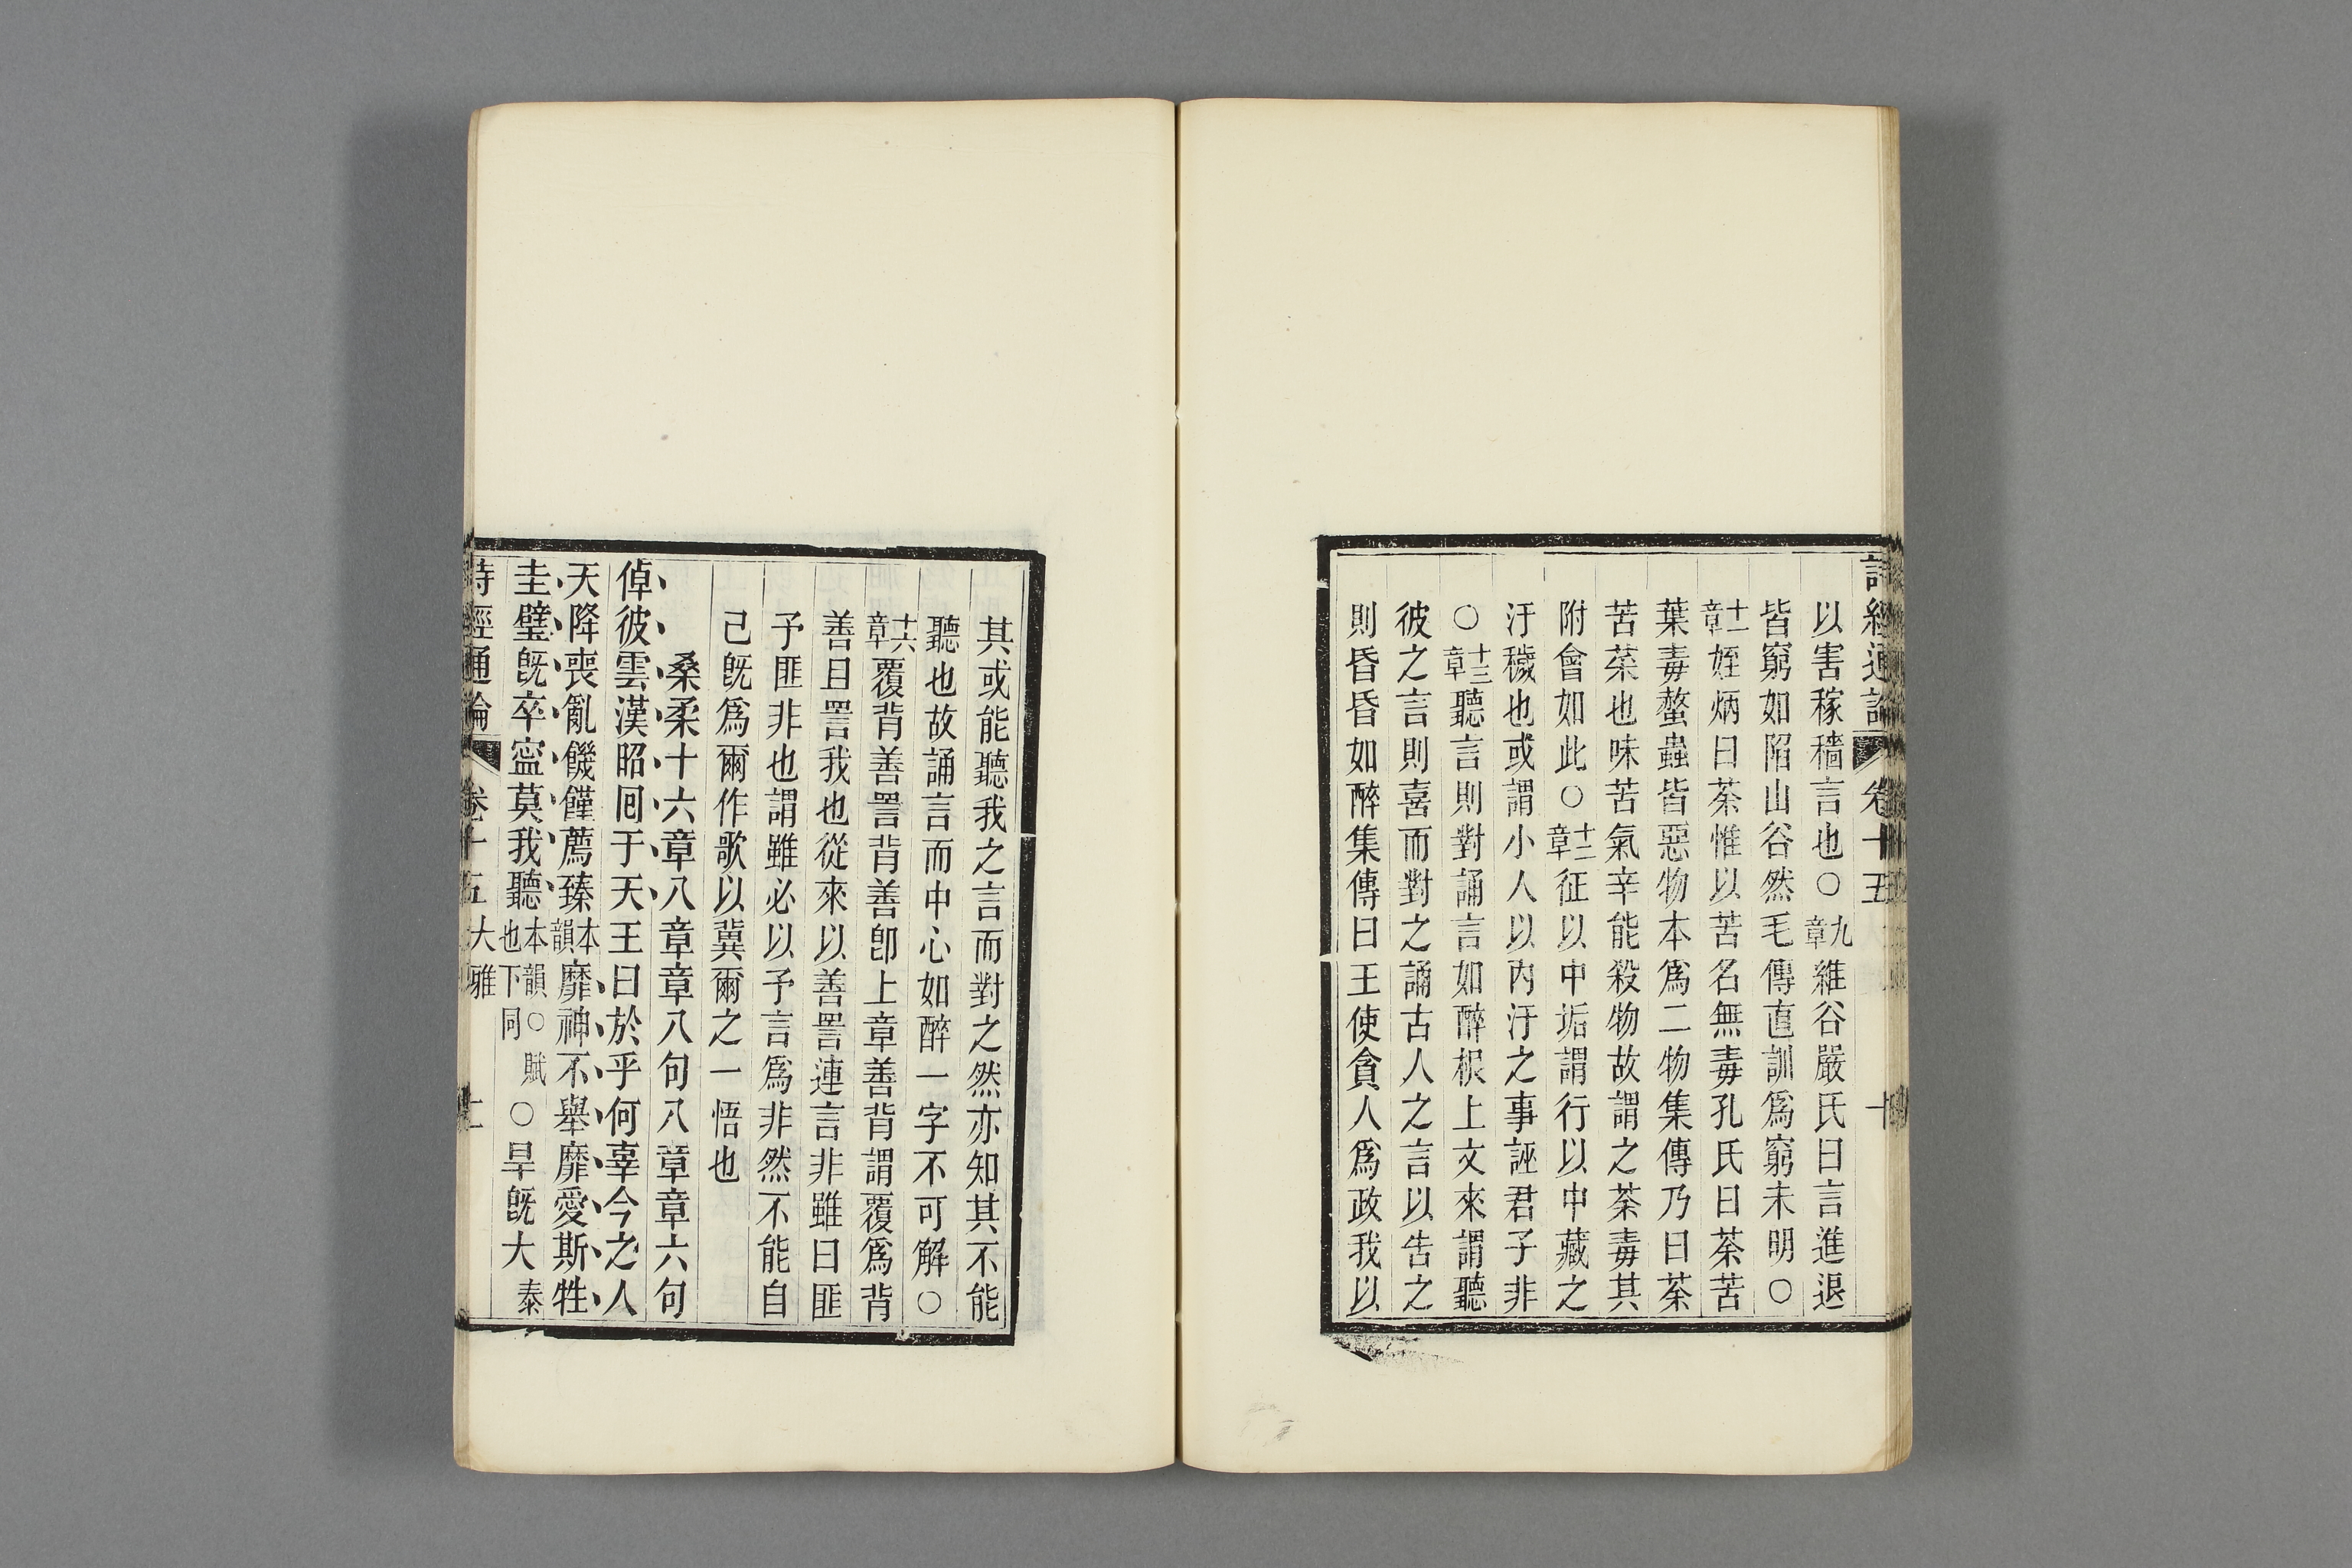 詩經通論 卷十五 十
以害稼穡言也○九章維谷嚴氏曰言進退
皆窮如陷山谷然毛傳直訓為窮未明○
十一章姪炳曰荼惟以苦名無毒孔氏曰荼苦
葉毒螫蟲皆惡物本為二物集傳乃曰荼
苦菜也味苦氣辛能殺物故謂之荼毒其
附會如此○十二章征以中垢謂行以中藏之
汙穢也或謂小人以內汙之事誣君子非
○十三章聽言則對誦言如醉根上文來謂聽
彼之言則喜而對之誦古人之言以告之
則昏昏如醉集傳曰王使貪人爲政我以
其或能聽我之言而對之然亦知其不能
聽也故誦言而中心如醉一字不可解○
十六章覆背善詈背善卽上章善背謂覆爲背
善且詈我也從來以善詈連言非雖曰匪
予匪非也謂雖必以予言爲非然不能自
己旣爲爾作歌以冀爾之一悟也
桑柔十六章八章章八句八章章六句
倬彼雲漢昭回于天王曰於乎何辜今之人
天降喪亂饑饉薦臻本韻靡神不舉靡愛斯牲
圭璧旣卒寍莫我聽本韻○賦也下同○旱旣大泰
詩經通論 卷十五 大雅